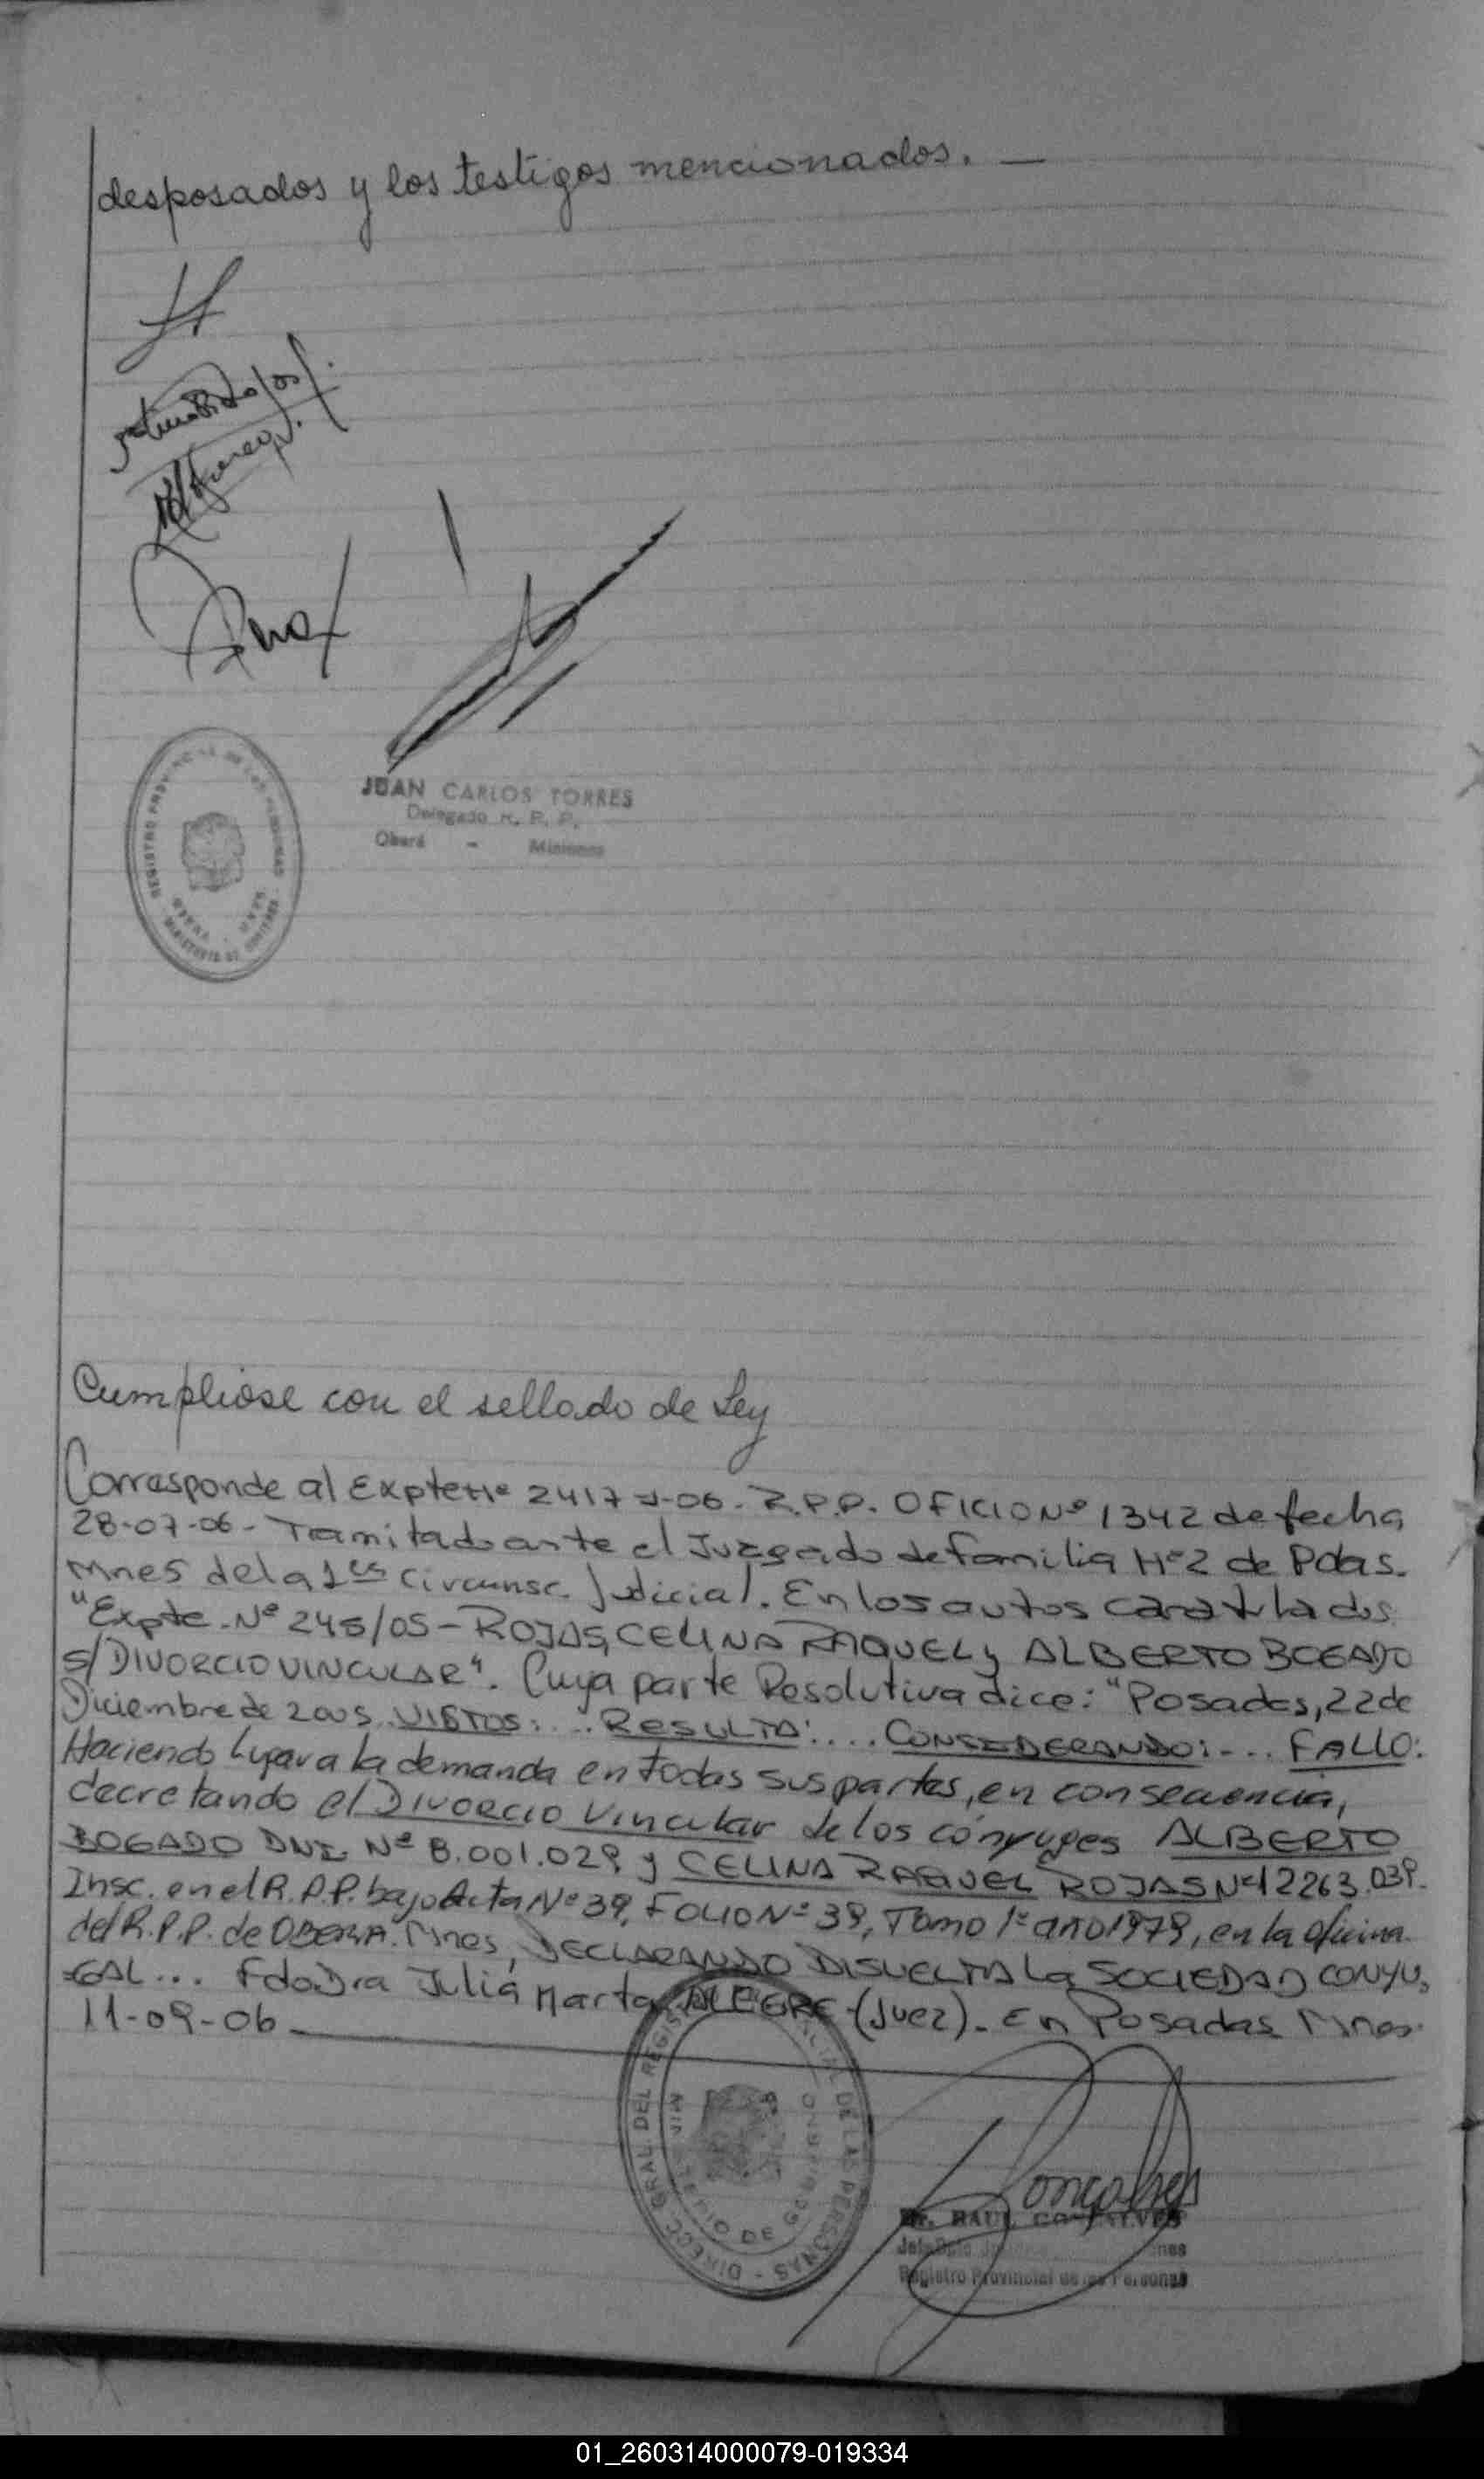 desposados y los testigos mencionados. —
JUAN CARLOS TORRES
Delegado R. P. P.
Oberá - Misiones
REGISTRO PROVINCIAL DE LAS PERSONAS
Cumpliose con el sellado de Ley
Corresponde al Expte Nº 2417-J-06. R.P.P. OFICIO Nº 1342 de fecha
28-07-06- Tramitado ante el Juzgado de familia Nº2 de Pdas.
Mnes de la 1era Circunsc. Judicial. En los autos caratulados
"Expte. Nº 245/05 - ROJAS, CELINA RAQUEL y ALBERTO BOGADO
S/ DIVORCIO VINCULAR". Cuya parte Resolutiva dice: "Posadas, 22 de
Diciembre de 2005. VISTOS:... RESULTA:.... CONSIDERANDO:-... FALLO:
Haciendo lugar a la demanda en todas sus partes, en consecuencia,
decretando el DIVORCIO Vincular de los cónyuges ALBERTO
BOGADO DNI. Nº 8.001.029 y CELINA RAQUEL ROJAS Nº 12263.039.
Insc. en el R.P.P. bajo Acta Nº 39, FOLIO Nº 39, Tomo 1º año 1979, en la oficina
del R.P.P. de OBERA. Mnes, DECLARANDO DISUELTA La SOCIEDAD CONYU,
=GAL... Fdo. Dra Julia Marta ALEGRE - (Juez). En Posadas Mnes.
11-09-06
DIRECC. GRAL. DEL REGISTRO PROVINCIAL DE LAS PERSONAS
MINISTERIO DE GOBIERNO
Gonçalves
Dr. RAUL GONSALVES
Registro Provincial de las Personas
01_260314000079-019334